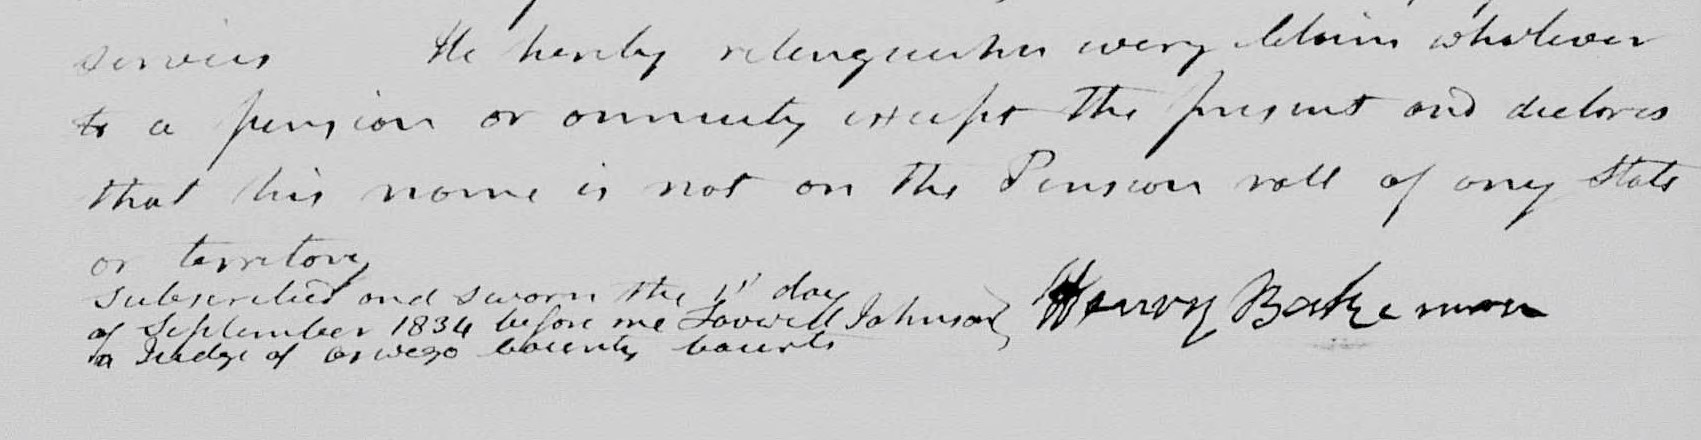 services He hereby relinquishes every Claim whatever
to a pension or annuity except the present and declares
that his name is not on the Pension roll of any State
or territory
Subscribed and sworn the 1st day
of September 1834 before me Lovewell Johnson
a Judge of Oswego County Courts
Henry Bakeman